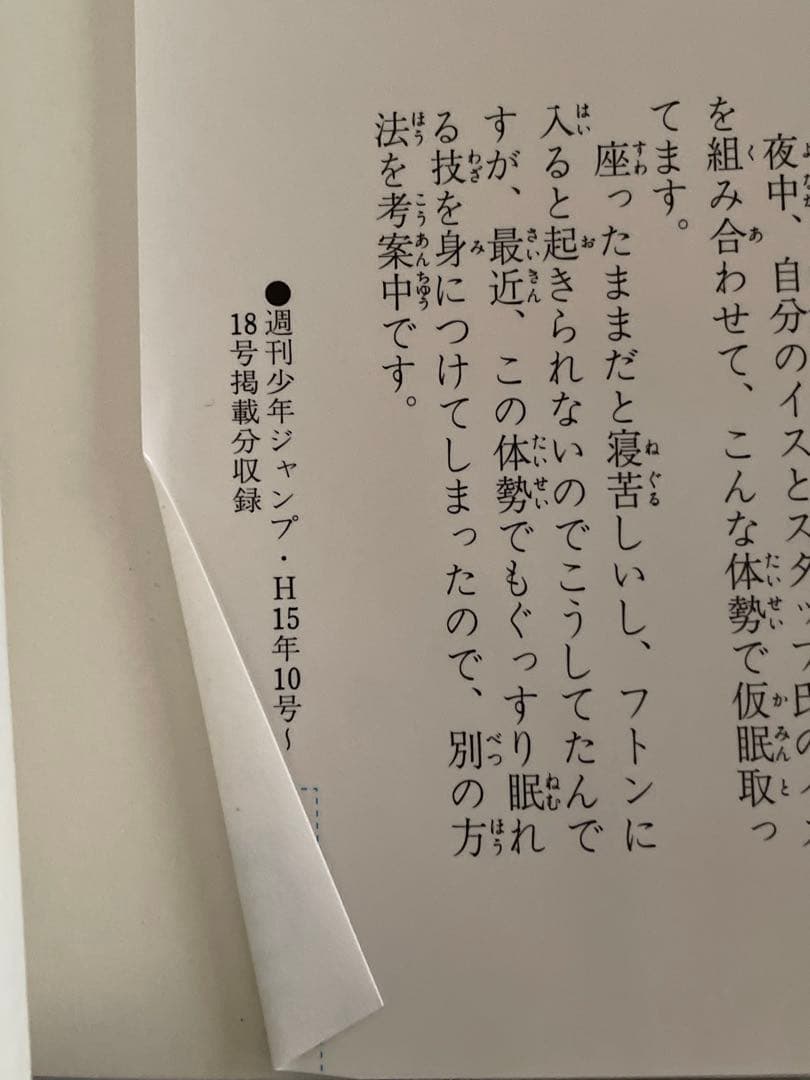 夜中、自分のイスとスタッフ氏のイス
を組み合わせて、こんな体勢で仮眠取っ
てます。
座ったままだと寝苦しいし、フトンに
入ると起きられないのでこうしてたんで
すが、最近、この体勢でもぐっすり眠れ
る技を身につけてしまったので、別の方
法を考案中です。
●週刊少年ジャンプ・H15年10号〜
18号掲載分収録